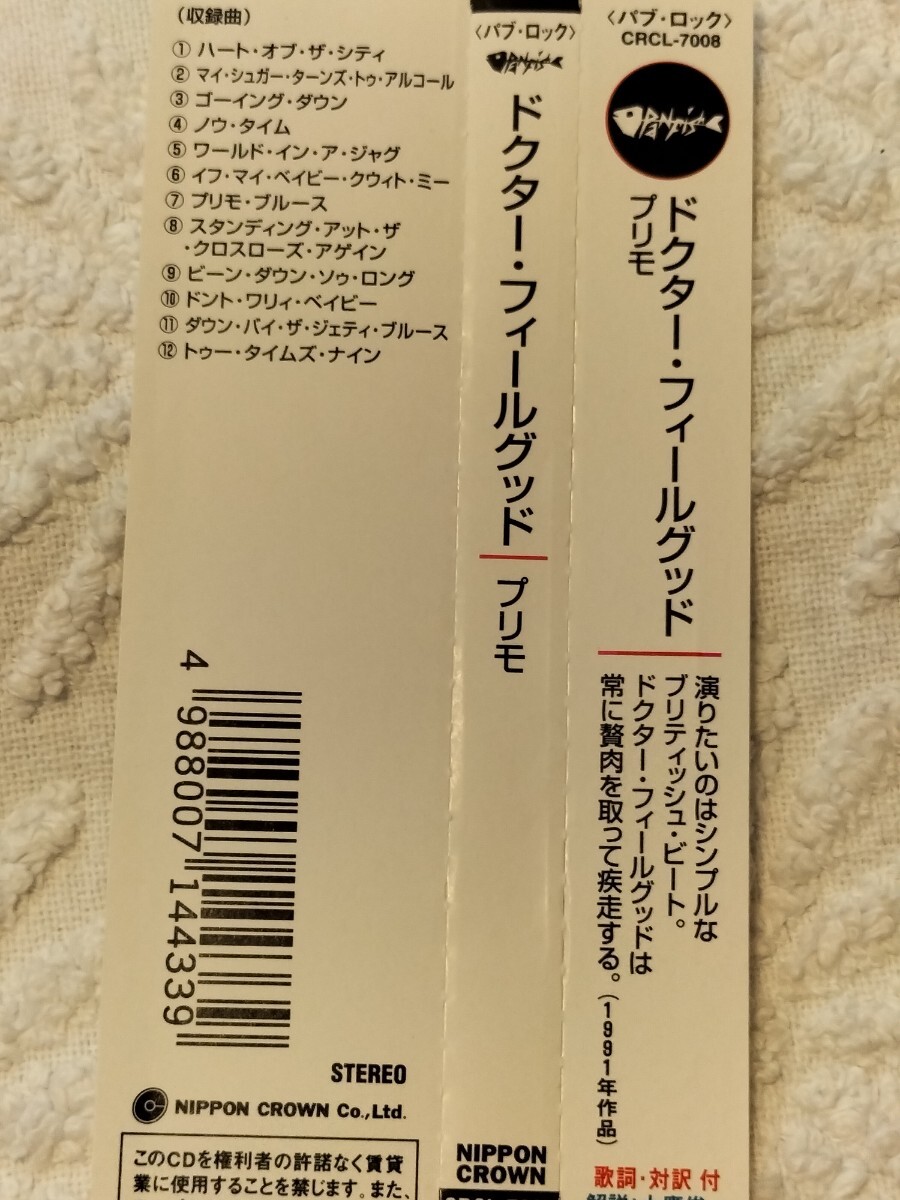 (収録曲)
① ハート・オブ・ザ・シティ
② マイ・シュガー・ターンズ・トゥ・アルコール
③ ゴーイング・ダウン
④ ノウ・タイム
⑤ ワールド・イン・ア・ジャグ
⑥ イフ・マイ・ベイビー・クウィト・ミー
⑦ プリモ・ブルース
⑧ スタンディング・アット・ザ
・クロスローズ・アゲイン
⑨ ビーン・ダウン・ソゥ・ロング
⑩ ドント・ワリィ・ベイビー
⑪ ダウン・バイ・ザ・ジェティ・ブルース
⑫ トゥー・タイムズ・ナイン
4 988007 144339
STEREO
NIPPON CROWN Co.,Ltd.
このCDを権利者の許諾なく賃貸
業に使用することを禁じます。また、
〈パブ・ロック〉
Panfish
ドクター・フィールグッド
プリモ
NIPPON
CROWN
〈パブ・ロック〉
CRCL-7008
Panfish
ドクター・フィールグッド
プリモ
演りたいのはシンプルな
ブリティッシュ・ビート。
ドクター・フィールグッドは
常に贅肉を取って疾走する。(1991年作品)
歌詞・対訳 付